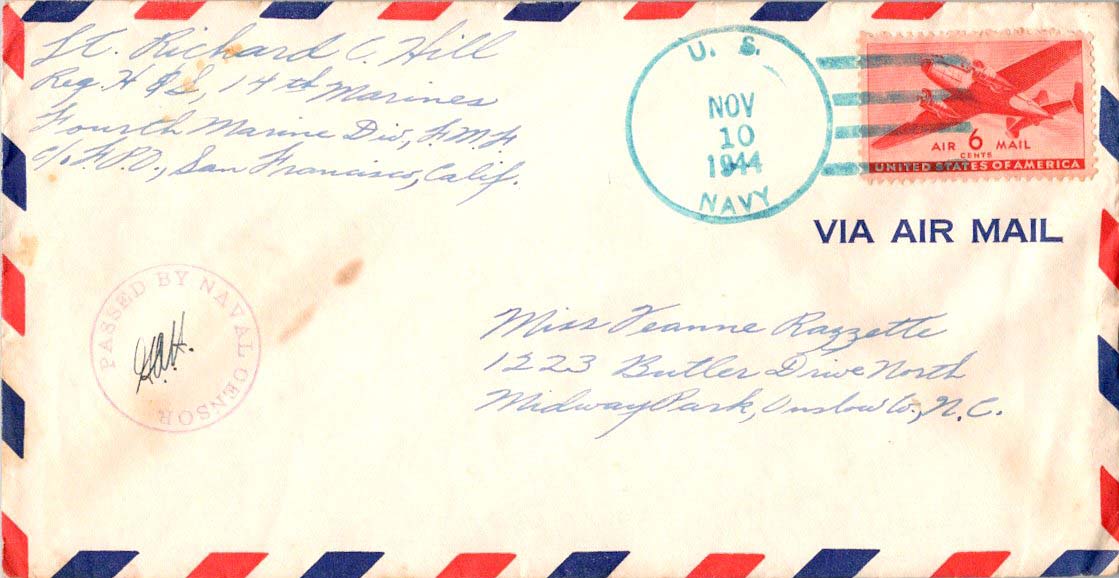 Lt. Richard C. Hill
Reg. H & S, 14th Marines
Fourth Marine Div., F.M.F.
c/o F.P.O., San Francisco, Calif.
U. S.
NOV
10
1944
NAVY
AIR 6 MAIL
CENTS
UNITED STATES OF AMERICA
VIA AIR MAIL
PASSED BY NAVAL CENSOR
Miss Jeanne Razzette
1223 Butler Drive North
Midway Park, Onslow Co., N.C.